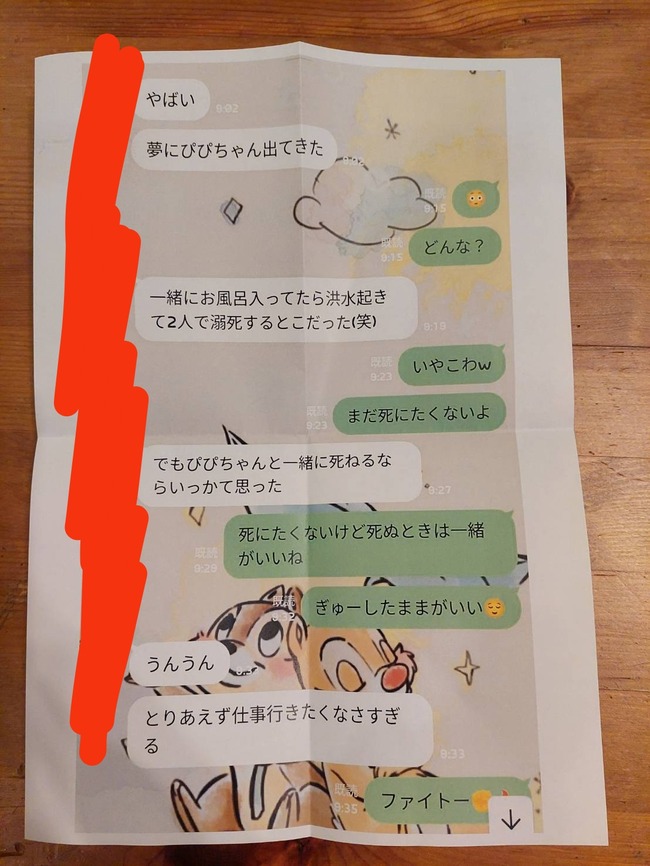 やばい
9:02
夢にぴぴちゃん出てきた
既読
9:15
どんな？
既読
9:15
一緒にお風呂入ってたら洪水起き
て2人で溺死するとこだった(笑)
9:19
いやこわw
既読
9:23
まだ死にたくないよ
既読
9:23
でもぴぴちゃんと一緒に死ねるな
らいっかて思った
9:27
死にたくないけど死ぬときは一緒
がいいね
既読
9:29
ぎゅーしたままがいい😌
既読
うんうん
とりあえず仕事行きたくなさすぎ
る
9:33
ファイトー
既読
9:35